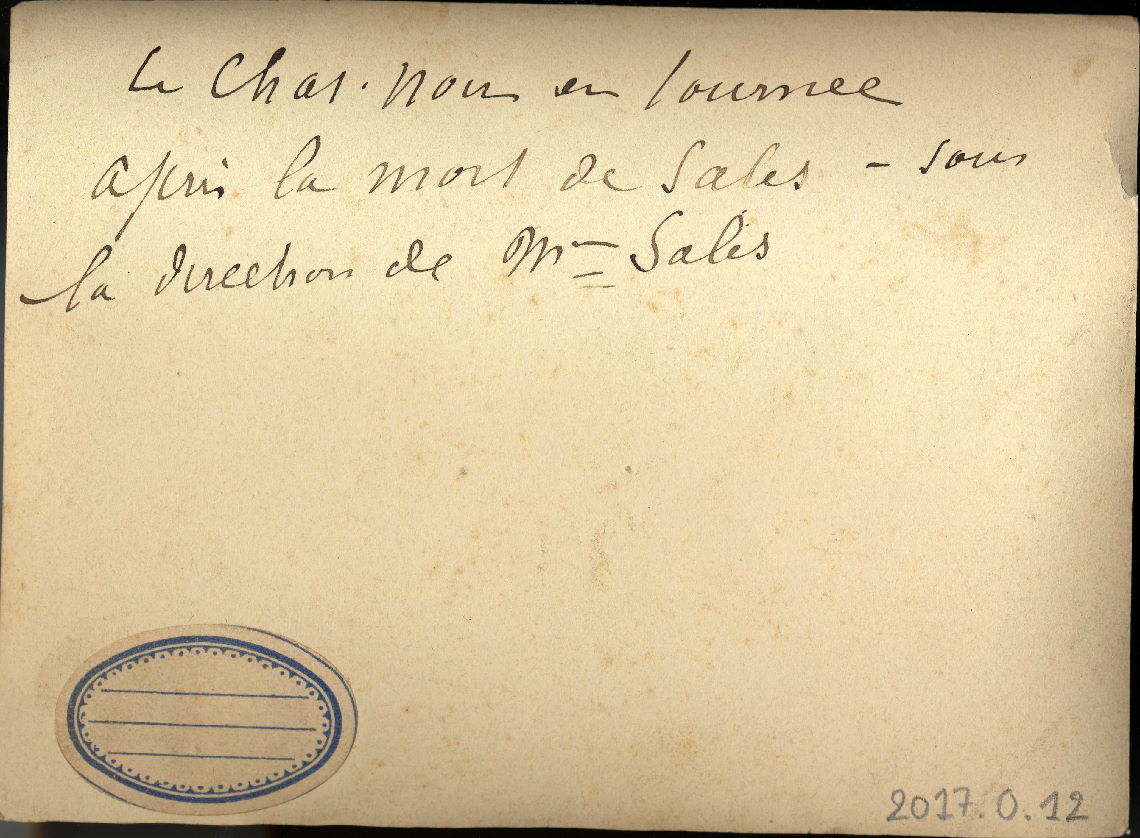 Le Chat-noir en tournee
après la mort de Sales - sous
la direction de Mme Sales
2017.0.12